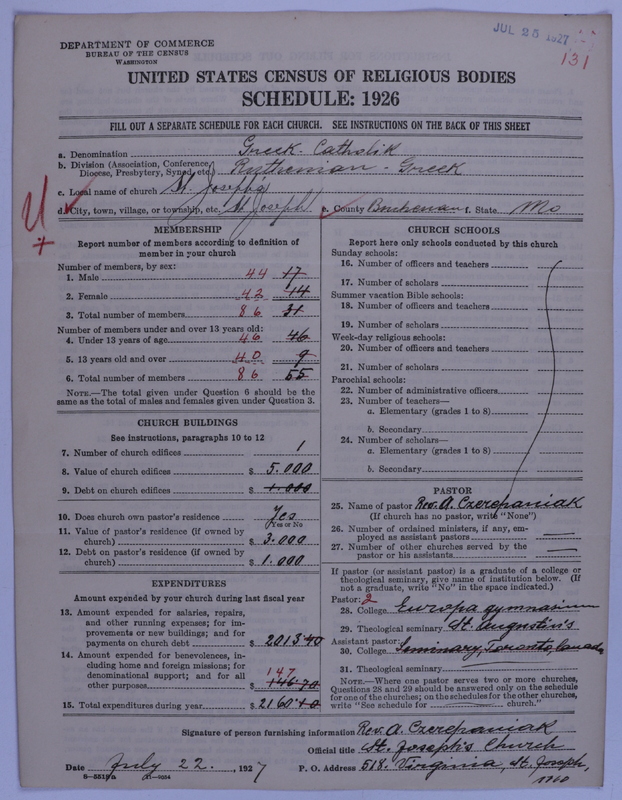 JUL 25 1927
131
DEPARTMENT OF COMMERCE
BUREAU OF THE CENSUS
WASHINGTON
UNITED STATES CENSUS OF RELIGIOUS BODIES
SCHEDULE: 1926
FILL OUT A SEPARATE SCHEDULE FOR EACH CHURCH. SEE INSTRUCTIONS ON THE BACK OF THIS SHEET
a. Denomination Greek-Catholik
b. Division (Association, Conference, Diocese, Presbytery, Synod, etc.) Ruthenian-Greek
c. Local name of church St. Josephs
d. City, town, village, or township, etc. St Joseph e. County Buchenan f. State Mo
U
MEMBERSHIP
Report number of members according to definition of
member in your church
Number of members, by sex:
1. Male 44 17
2. Female 42 14
3. Total number of members 86 31
Number of members under and over 13 years old:
4. Under 13 years of age 46 46
5. 13 years old and over 40 9
6. Total number of members 86 55
NOTE.—The total given under Question 6 should be
same as the total of males and females given under Question 3.
CHURCH BUILDINGS
See instructions, paragraphs 10 to 12
7. Number of church edifices 1
8. Value of church edifices $ 5.000
9. Debt on church edifices $ 1.000
10. Does church own pastor's residence Yes
(Yes or No)
11. Value of pastor's residence (if owned by
church) $ 3.000
12. Debt on pastor's residence (if owned by
church) $ 1.000
EXPENDITURES
Amount expended by your church during last fiscal year
13. Amount expended for salaries, repairs,
and other running expenses; for im-
provements or new buildings; and for
payments on church debt $ 2013 40
14. Amount expended for benevolences, in-
cluding home and foreign missions; for
denominational support; and for all
147
other purposes $ 146.70
15. Total expenditures during year $ 2160 10
CHURCH SCHOOLS
Report here only schools conducted by this church
Sunday schools:
16. Number of officers and teachers
17. Number of scholars
Summer vacation Bible schools:
18. Number of officers and teachers
19. Number of scholars
Week-day religious schools:
20. Number of officers and teachers
21. Number of scholars
Parochial schools:
22. Number of administrative officers
23. Number of teachers—
a. Elementary (grades 1 to 8)
b. Secondary
24. Number of scholars—
a. Elementary (grades 1 to 8)
b. Secondary
PASTOR
25. Name of pastor Rev. A. Czerepaniak
(If church has no pastor, write "None")
26. Number of ordained ministers, if any, em-
ployed as assistant pastors
27. Number of other churches served by the
pastor or his assistants
If pastor (or assistant pastor) is a graduate of a college or
theological seminary, give name of institution below. (If
not a graduate, write "No" in the space indicated.)
Pastor: 2
28. College Europa gymnasium
29. Theological seminary St. Augustin's
Assistant pastor:
30. College Seminary, Toronto Canada
31. Theological seminary
NOTE.—Where one pastor serves two or more churches,
Questions 28 and 29 should be answered only on the schedule
for one of the churches; on the schedules for the other churches,
write "See schedule for church."
Signature of person furnishing information Rev. A. Czerepaniak
Official title St. Joseph's Church
Date July 22, 1927 P. O. Address 518. Virginia, St. Joseph,